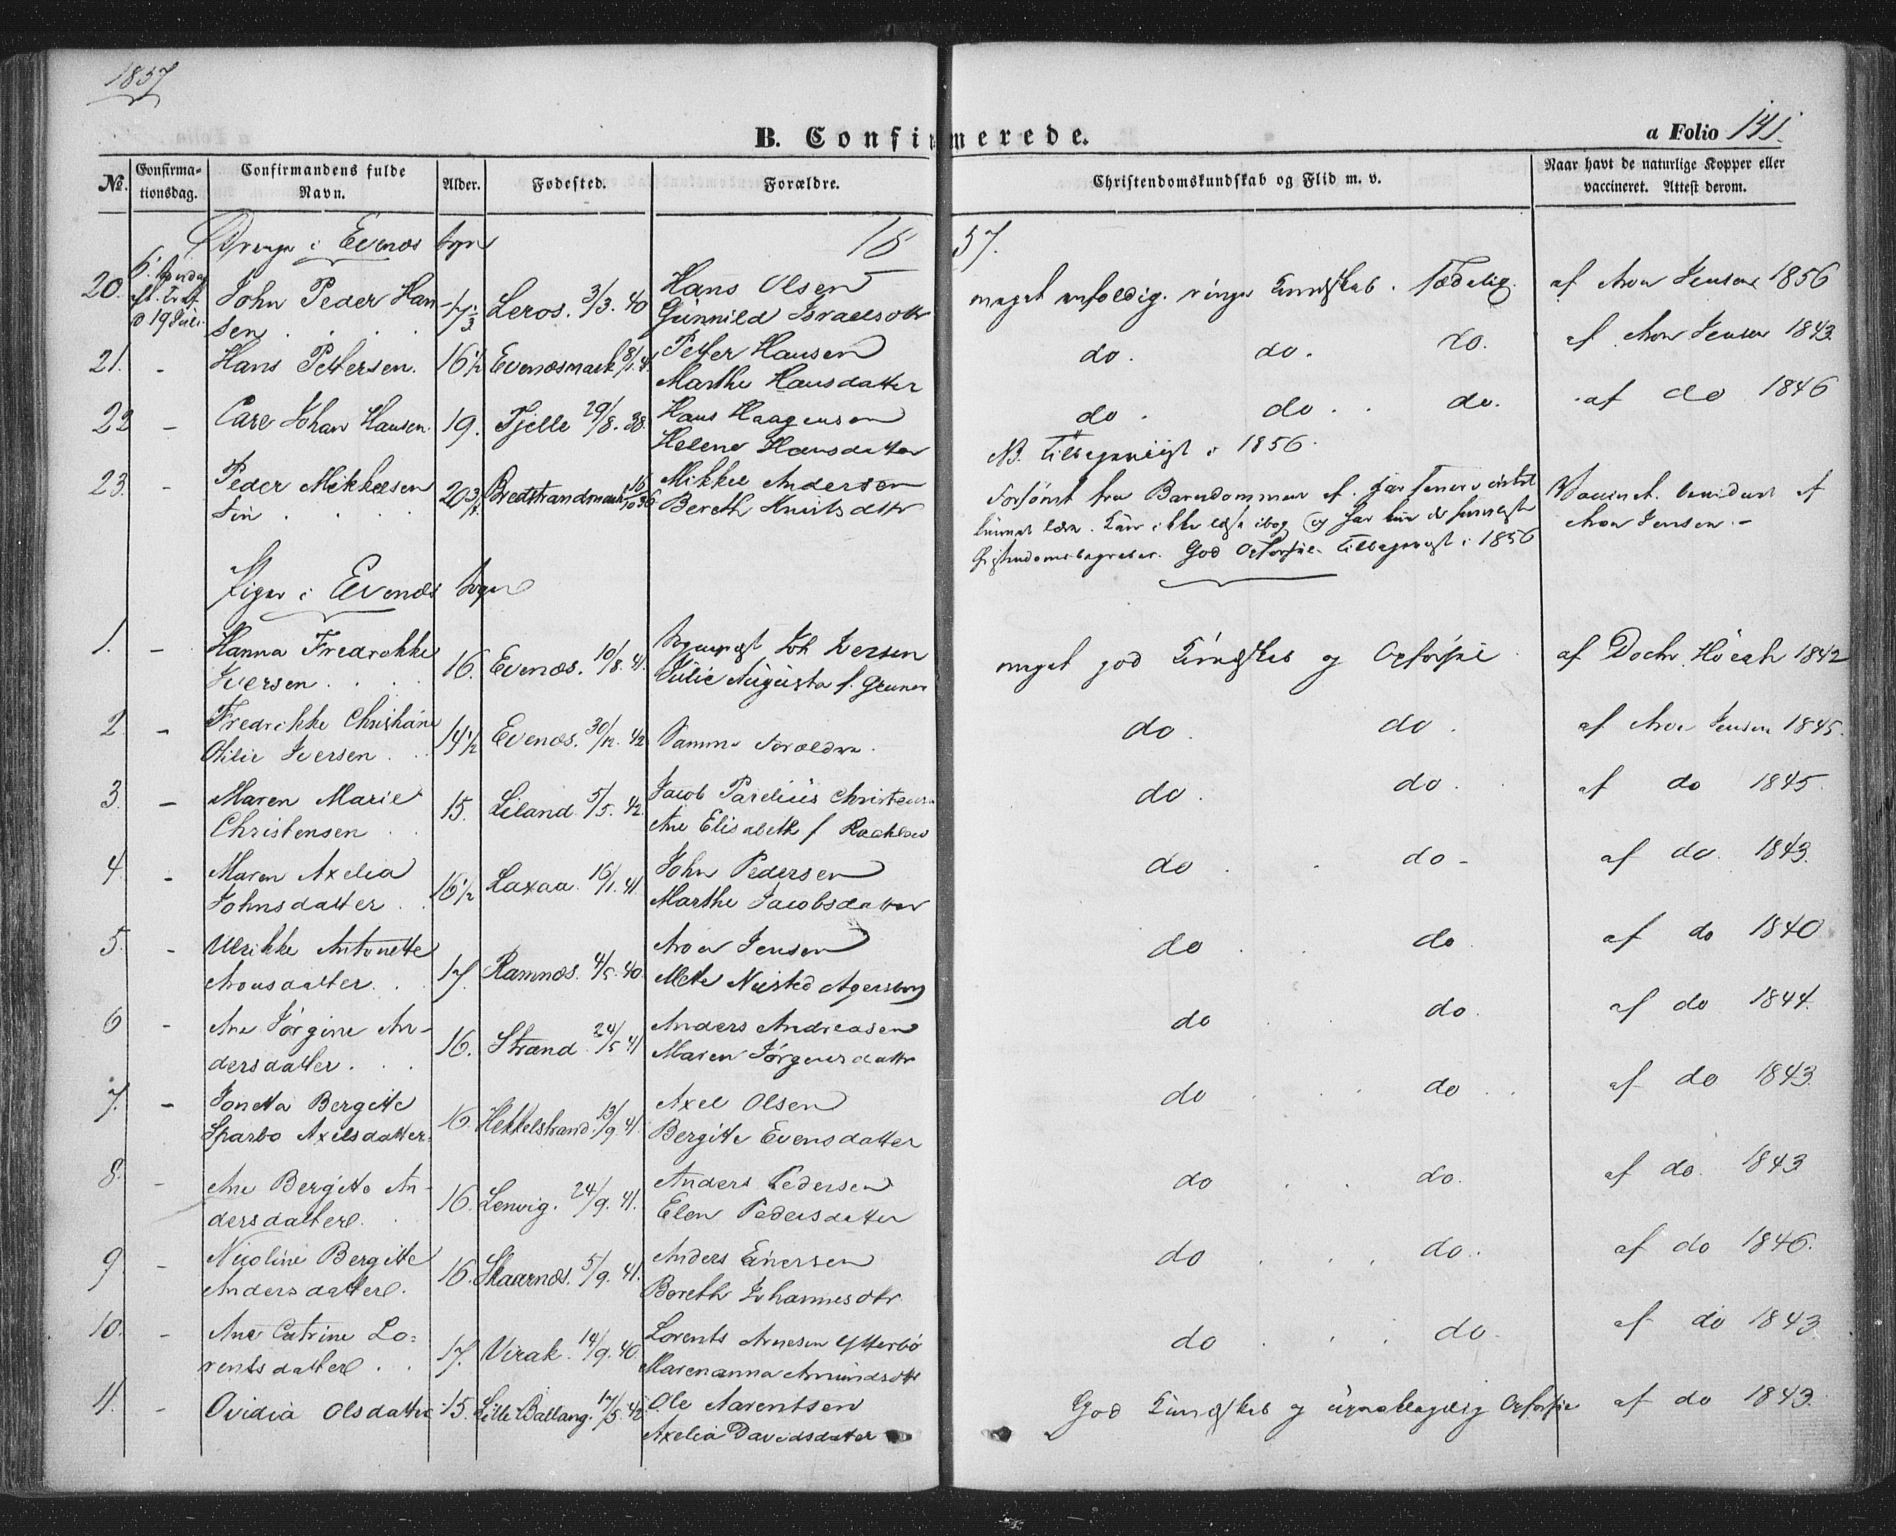 1857
B. Confirmerede.
a Folio 141.
No. Confirmationsdag. Confirmandens fulde Navn. Alder. Fødested. Forældre. Christendomskundskab og Flid m. v. Naar havt de naturlige Kopper eller vaccineret. Attest derom.
Drenge i Evenæs Sogn 18 57.
20. 6. Søndag John Peder Han- 17 1/3 Leros. 3/3. 40 Hans Olsen meget enfoldig. ringe Kundskab. Sædelig. af Aron Jensen 1856
eft. Trinit. d 19 Juli. sen . . . . Gunnild Israelsdtr
21. - Hans Pettersen. 16 1/2 Evenæsmark 8/1. 41 Petter Hansen do. do. do. af Aron Jensen 1843.
Marthe Hansdatter
22 - Carl Johan Hansen. 19. Tjelle 29/8. 38. Hans Haagensen do. do. . do. af do 1846
Helene Hansdatter NB. Tilbageviist i 1856.
23. - Peder Mikkelsen 20 3/4 Bredstrandmark 16/10 36 Mikkel Andersen Forsømt fra Barndommen af. har senere intet Vaccinet. bevidnet af
Fin . . . . Bereth Knutsdttr kunnet lære. Kan ikke læse i bog og har kun de fornødneste Aron Jensen. -
Christendomsbegreber. God Opførsel. Tilbageviist i 1856
Piger i Evenæs Sogn
1. - Hanna Fredrekke 16. Evenæs. 10/8. 41. Sognepræst Joh Iversen meget god Kundskab og Opførsel. af Doctr. Höegh 1842
Iversen . . . . Julie Augusta f. Gruner
2 - Fredrikke Christiane 14 1/2 Evenæs. 30/12. 42 Samme Forældre. do. do. af Aron Jensen 1845.
Otilie Iversen . .
3. - Maren Marie 15. Liland. 5/5. 42. Jacob Parelius Christensen do. do. af do 1845.
Christensen . . Ane Elisabeth f
4 - Maren Axelia 16 1/2 Laxaa. 16/1. 41. John Pedersen do. do - af do. 1843.
Johnsdatter . . Marthe Jacobsdatter
5. - Ulrikke Antonette 17. Ramnæs. 4/5. 40. Aron Jensen do. do. af do 1840
Aronsdatter. . Mette Neisted Agersborg
6 - Ane Jørgine An- 16. Strand. 24/5 41 Anders Andreasen do do. af do 1844.
dersdatter . . Maren Jørgensdattr
7. - Jonetta Bergitte 16 Hekkelstrand. 13/9. 41. Axel Olsen do do . . af do 1843.
Sparbo Axelsdatter. Bergitte Evensdatter
8. - Ane Bergitte An- 16. Lenvig. 24/9. 41. Anders Pedersen do do. af do. 1843
dersdatter. Elen Pedersdatter
9. - Nicoline Bergitte 16. Skaarnæs. 5/9. 41. Anders Einersen do do. af do 1846.
Andersdatter. Bereth Johannesdtr
10. - Ane Catrine Lo- 17. Virak. 14/9. 40. Lorents Arnesen Ytterbø do do. af do 1843
rentsdatter . . Marenanna Amundsdtr
11. - Ovidia Olsdatter 15. Lille Ballang. 17/5. 42 Ole Aarentsen God Kundskab og upaaklagelig Opførsel af do 1843.
Axelia Davidsdatter